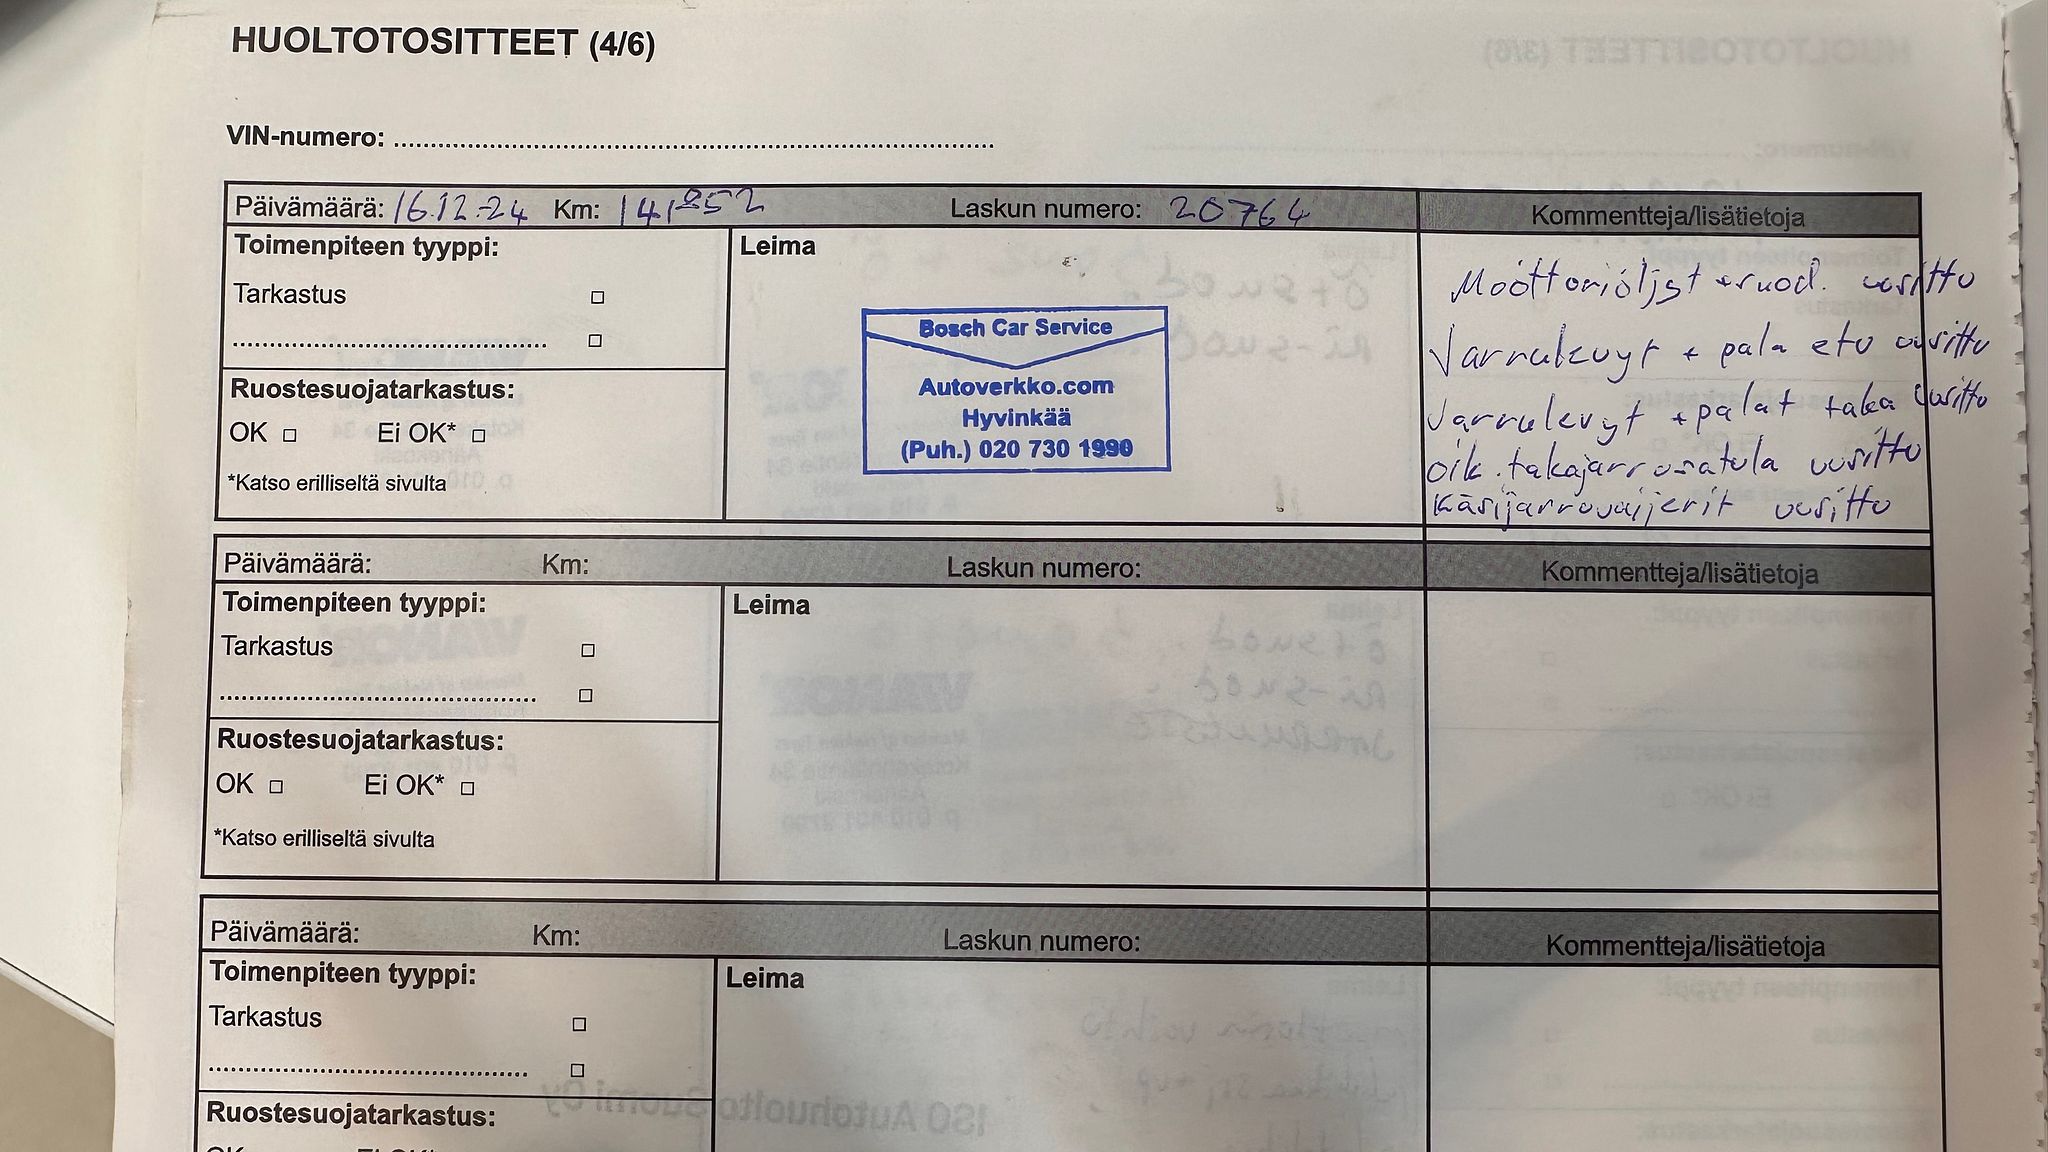 HUOLTOTOSITTEET (4/6)
VIN-numero:
Päivämäärä: 16.12.24 Km: 141,852 Laskun numero: 20764 Kommentteja/lisätietoja
Toimenpiteen tyyppi:
Tarkastus
Ruostesuojatarkastus:
OK Ei OK*
*Katso erilliseltä sivulta
Leima
Bosch Car Service
Autoverkko.com
Hyvinkää
(Puh.) 020 730 1990
Moottoriöljyt + suod. uusittu
Jarrulevyt + pala etu uusittu
Jarrulevyt + palat taka uusittu
oik. takajarrusatula uusittu
Käsijarruvaijerit uusittu
Päivämäärä: Km: Laskun numero: Kommentteja/lisätietoja
Toimenpiteen tyyppi:
Tarkastus
Ruostesuojatarkastus:
OK Ei OK*
*Katso erilliseltä sivulta
Leima
Päivämäärä: Km: Laskun numero: Kommentteja/lisätietoja
Toimenpiteen tyyppi:
Tarkastus
Ruostesuojatarkastus:
Leima